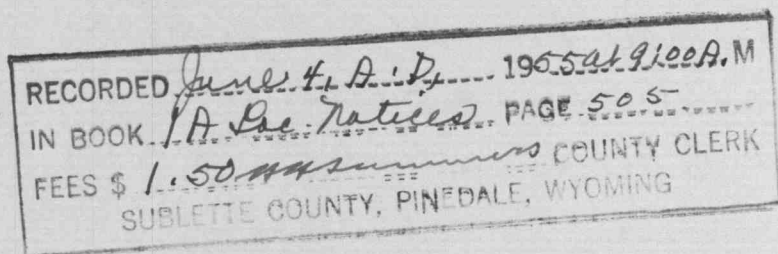 RECORDED June 4, A.D., 1955 at 9:00 A.M
IN BOOK 1A Loc. Notices PAGE 505
FEES $ 1.50 COUNTY CLERK
SUBLETTE COUNTY, PINEDALE, WYOMING